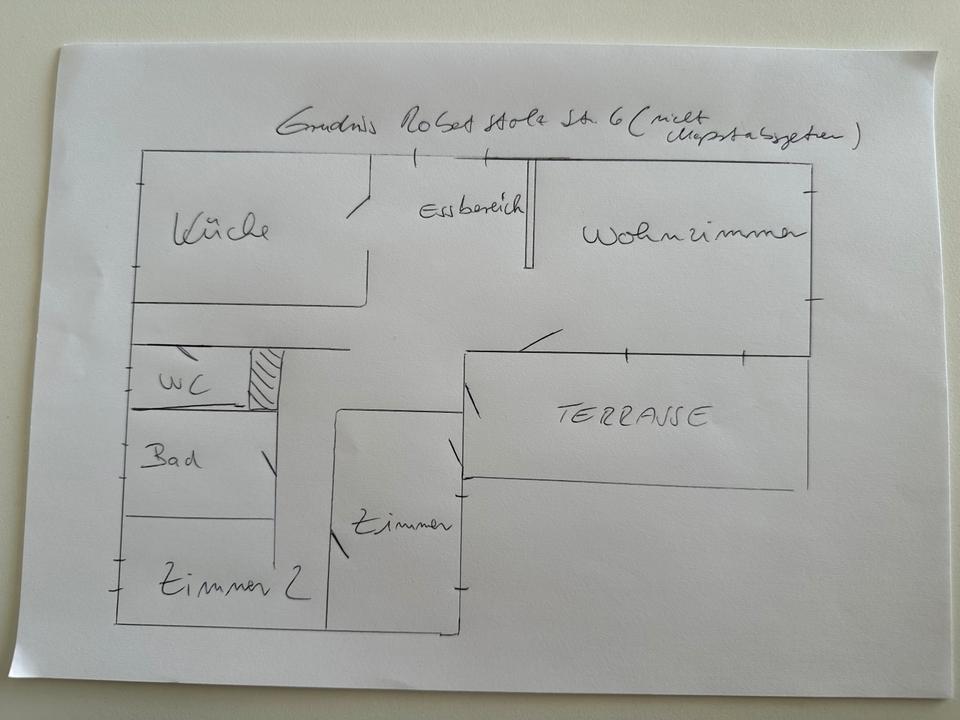 Grundriß Robert Stolz Str. 6 (nicht
Maßstabsgetreu)
Küche
Essbereich
Wohnzimmer
WC
TERRASSE
Bad
Zimmer
Zimmer 2